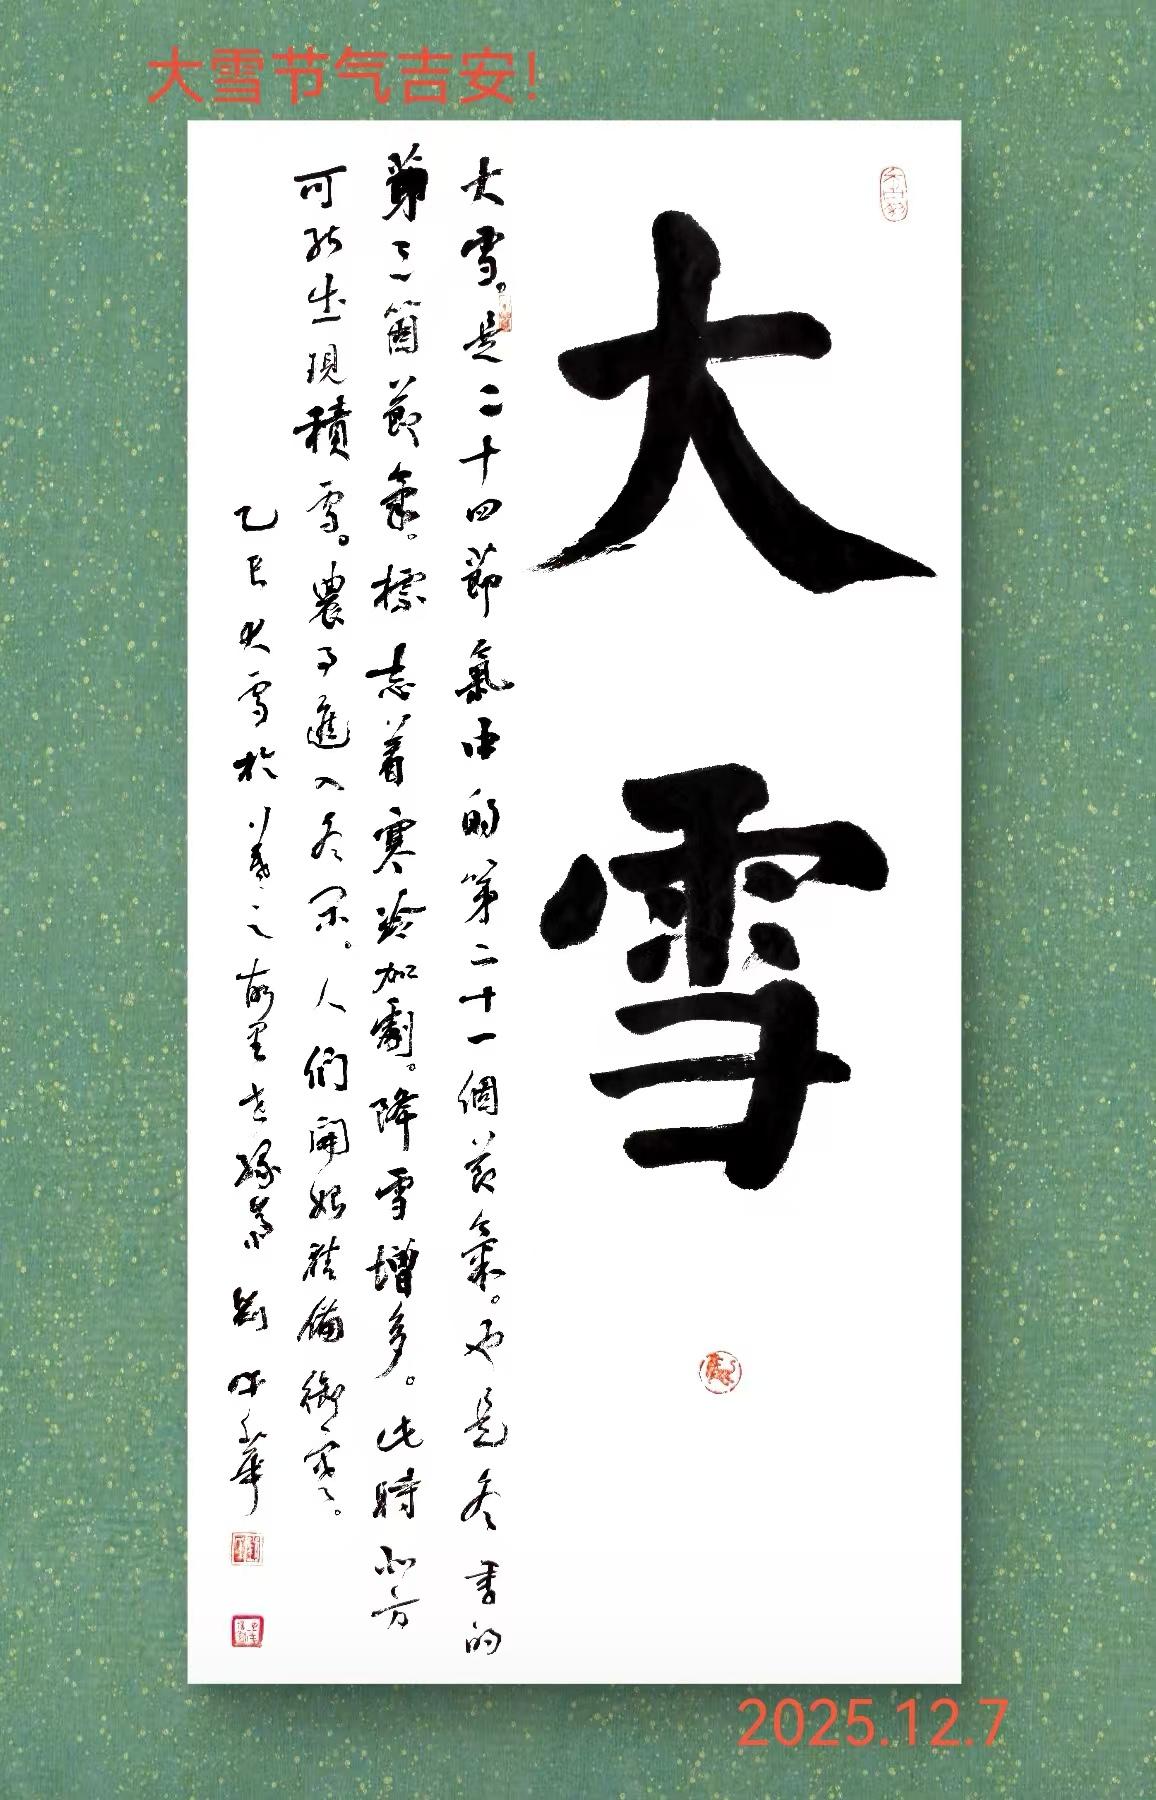 大雪节气吉安!
大雪
大雪。是二十四節氣中的第二十一個节氣。也是冬季的
第三箇節氣。標志着寒冷加劇。降雪增多。此時北方
可能出現積雪。農事進入冬閑。人們開始準備御寒。
乙巳大雪於羲之故里志緣齋劉華
2025.12.7